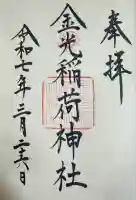 奉拝
金光稲荷神社
令和七年三月二六日